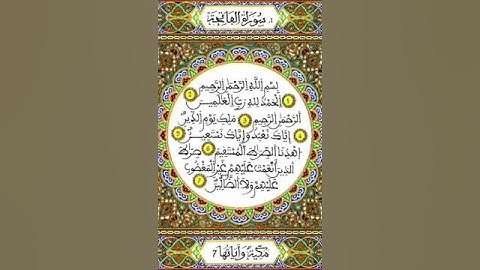 1. سورة الفاتحة
بسم الله الرحمن الرحيم
1 الحمد لله رب العلمين 2
الرحمن الرحيم 3 ملك يوم الدين
4 إياك نعبد وإياك نستعين 5
اهدنا الصراط المستقيم 6 صراط
الذين أنعمت عليهم غير المغضوب
عليهم ولا الضالين 7
مكية وآياتها 7